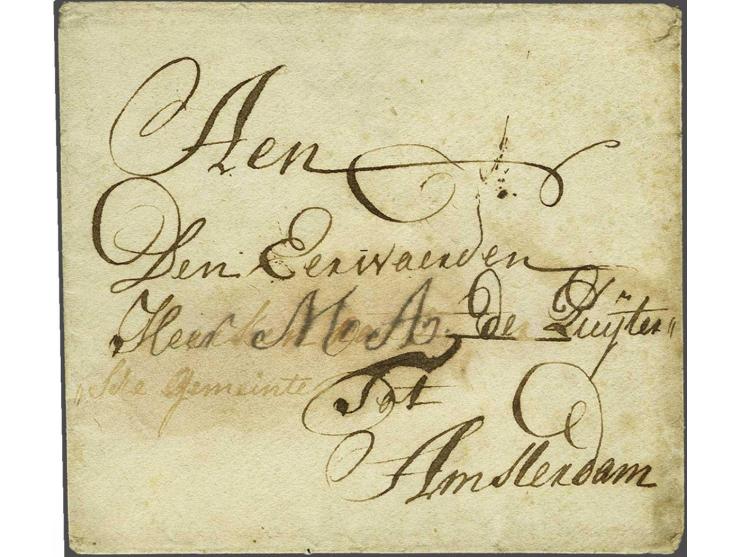 Aen
Den Eerwaerden
Heer M. A. de Ruijter
sche gemeinte
Tot
Amsterdam